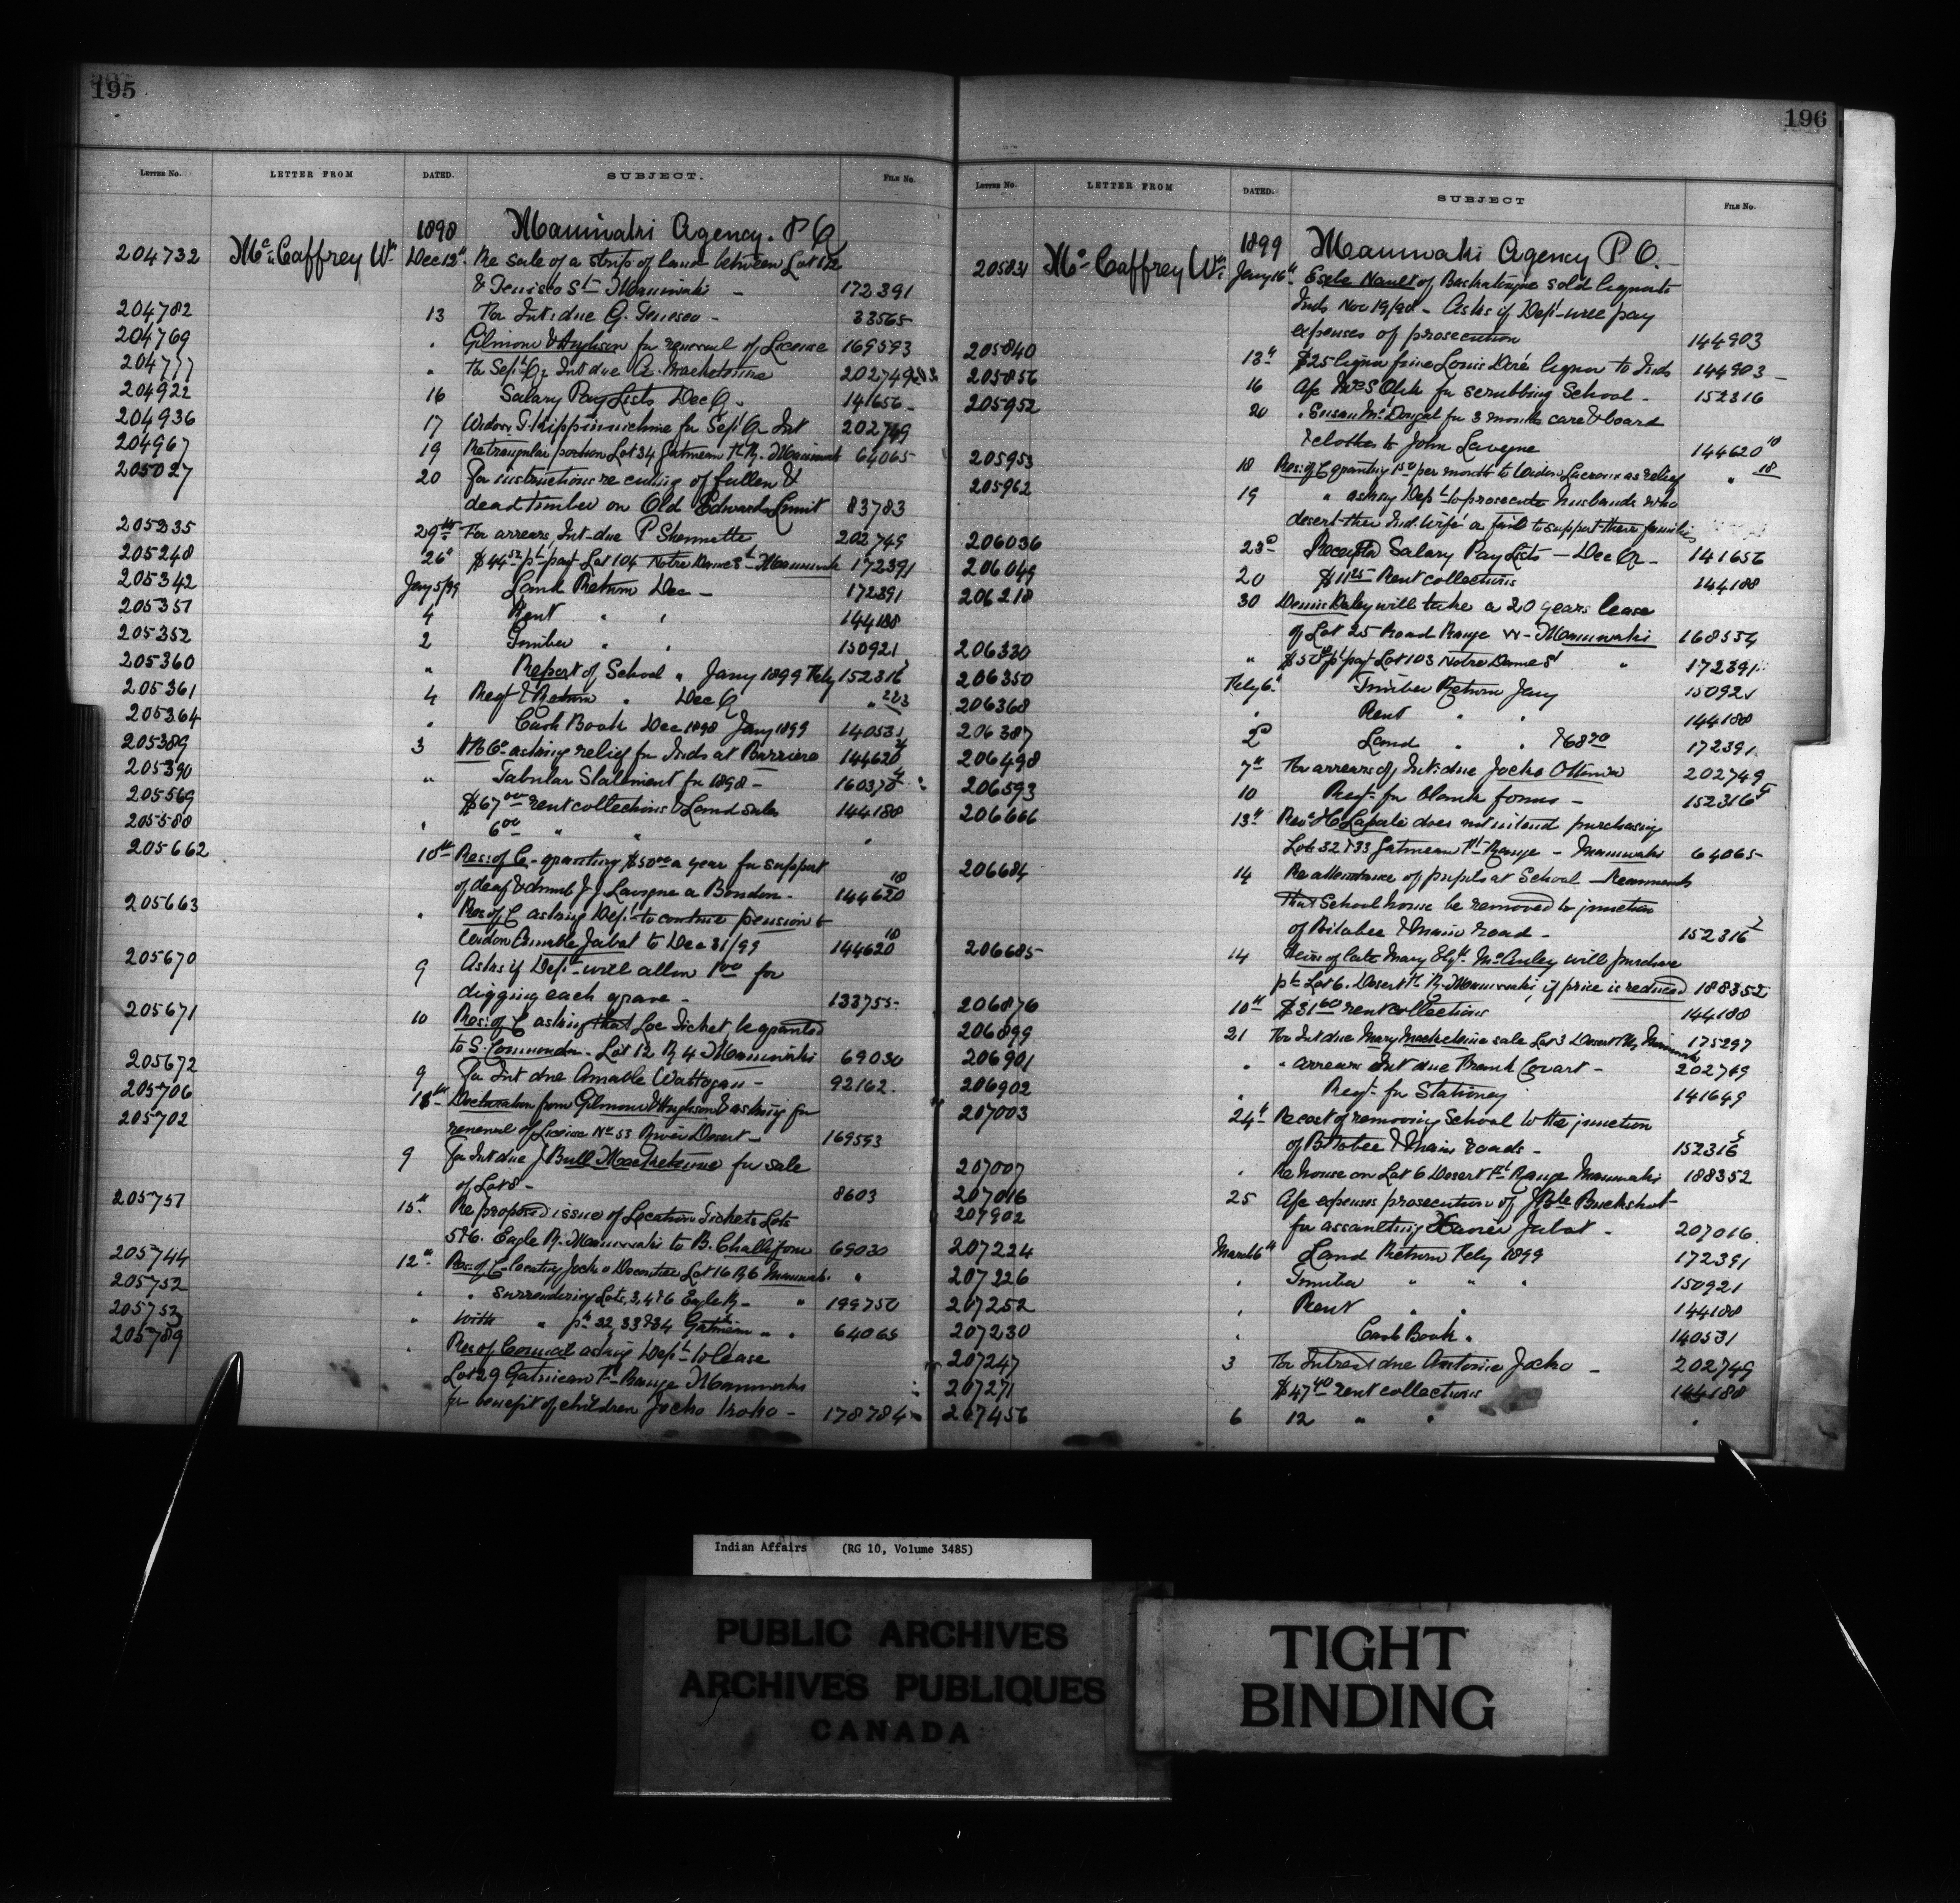 195
LETTER No. LETTER FROM DATED. SUBJECT. FILE No.
1898 Maniwaki Agency. P Q
204732 Mc Caffrey Wm Dec 12" Re sale of a strip of land between Lot 12
& Tenisco St Maniwaki - 172391
204782 13 For Int: due G. Tenesco - 33565
204769 " Gilmour & Hughson for renewal of License 169593
204777 " For Sept Qr Int due A. Macketcime 202749
204922 16 Salary Pay Lists Dec Q. 141656
204936 17 Widow S. for Sept Qr Int 202749
204967 19 Re triangular portion Lot 34 Gatineau Ft R. Maniwaki 64065
205027 20 For instructions re culling of fallen &
dead timber on Old Edwards Limit 83783
205235 29th For arrears, Int due P 202749
205248 26" $44 52 pt payt Lot 104 Notre Dame St Maniwaki 172391
205342 Jany 5/99 Land Return Dec - 172391
205351 4 Rent " " 144188
205352 2 Timber " " 150921
205360 " Report of School " Jany 1899 152316
205361 4 Reqt & Return " Dec Q " 223
205364 " Cash Book Dec 1898 Jany 1899 140531
205389 3 H B Co asking relief for Inds at Barriere 144620
205390 " Tabular Statement for 1898 - 160378
205569 $67 00 rent collections & Land sales 144188
205588 " 6 00 " " "
205662 10th Res: of C. granting $50 00 a year for support
of deaf & dumb J J Lavigne a Bondon. 144620 18
205663 " Res of C asking Dept to continue pension to
Widow Amable Jabot to Dec 31/99 144620 18
205670 9 Asks if Dept will allow 1 00 for
digging each grave - 133755
205671 10 Res: of C asking that Loc Ticket be granted
to S. Commonda. Lot 12 R 4 Maniwaki 69030
205672 9 For Int due Amable Wattagan - 92162
205706 13th Declaration from Gilmour & Hughson & asking for
renewal of License No 53 River Desert - 169593
205702 9 For Int due J Bull Macketcime for sale
of Lot 8 - 8603
205757 15" Re proposed issue of Location Tickets Lots
5 & 6. Eagle R. Maniwaki to B. Challifour 69030
205744 12" Res: of C locating Jocko Lot 16 R 6 Maniwaki "
205752 " " surrendering Lots, 3, 4 & 6 Eagle R - " 199750
205753 " With " pt 32, 33 & 34 Gatineau " " 64065
205789 " Res of Council asking Dept to lease
Lot 29 Gatineau Ft Range Maniwaki
for benefit of children Jocko - 178784
196
LETTER No. LETTER FROM DATED. SUBJECT FILE No.
1899 Maniwaki Agency P Q.
205831 Mc Caffrey Wm Jany 16" of Baskatong sold liquor to
Inds Nov 19/98 - Asks if Dept will pay
expenses of prosecution 144903
205840 13" $25 liquor fine Louis Doré liquor to Inds 144903
205856 16 a/c Mrs S for scrubbing School - 152316
205952 20 " Susan McDougal for 3 months care & board
& clothes to John Lavigne 144620 10
205953 18 Res: of C granting 1 50 per month to Widow Lacroix as relief " 18
205962 19 " asking Dept to prosecute husbands who
desert their Ind. wife or fail to support their families
206036 23d Receipted Salary Pay Lists - Dec Q - 141656
206049 20 $11 25 Rent collections 144188
206218 30 Dennis Daley will take a 20 years lease
of Lot 25 Road Range W - Maniwaki 168554
206330 " pt payt Lot 103 Notre Dame St " 172391
206350 Feby 6" Timber Return Jany 150921
206368 " Rent " " 144188
206387 2d Land " " & 68 70 172391
206498 7" For arrears of Int: due Jocko 202749
206593 10 Reqt for blank forms - 152316
206666 13" Revd H C does not intend purchasing
Lots 32 & 33 Gatineau Ft Range - Maniwaki 64065
206684 14 Re attendance of pupils at School - Recommends
that School house be removed to junction
of Bitobee & main road - 152316
206685 14 Heirs of late Mary Elizth McAuley will purchase
pt Lot 6. Desert Ft R. Maniwaki, if price is reduced 188352
206876 10" $31 60 rent collections 144188
206899 21 For Int due Mary Macketcime sale Lot 3 Desert Ft R Maniwaki 175297
206901 " " arrears Int due Frank Covart - 202749
206902 " Reqt for Stationery 141649
207003 24" Re cost of removing School to the junction
of Bitobee & Main roads - 152316
207007 " Re house on Lot 6 Desert Ft Range Maniwaki 188352
207016 25 a/c expenses prosecution of J Bte Buckshot
207902 for assaulting Xavier Jabot - 207016
207224 March 6" Land Return Feby 1899 172391
207226 " Timber " " " 150921
207252 " Rent " " 144188
207230 " Cash Book " 140531
207247 3 For Interest due Antoine Jocko - 202749
207271 $47 40 rent collections 144188
207456 6 12 " " "
Indian Affairs (RG 10, Volume 3485)
PUBLIC ARCHIVES
ARCHIVES PUBLIQUES
CANADA
TIGHT
BINDING